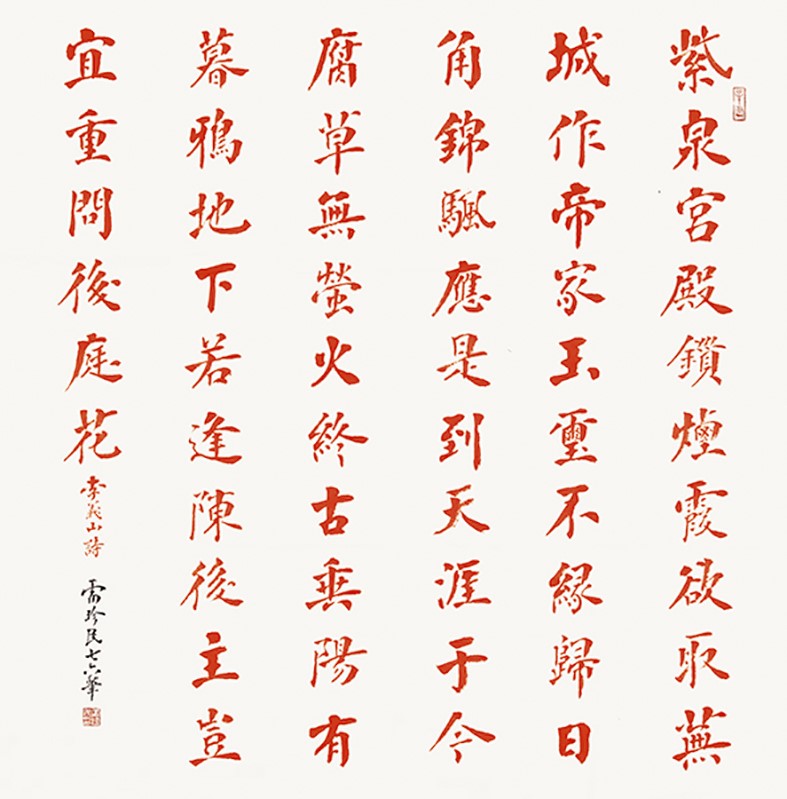 紫泉宮殿鎖煙霞欲取蕪
城作帝家玉璽不緣歸日
角錦颿應是到天涯于今
腐草無螢火終古垂陽有
暮鴉地下若逢陳後主豈
宜重問後庭花
李義山詩
霍珍民七六筆